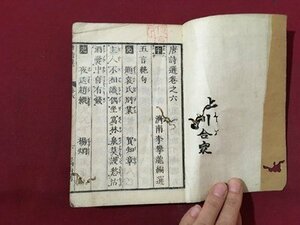 唐詩選卷之六
濟南李攀龍編選
五言絕句
題袁氏別業
賀知章
主人不相識偶坐爲林泉莫謾愁沽
酒囊中自有錢
夜送趙縱
楊炯